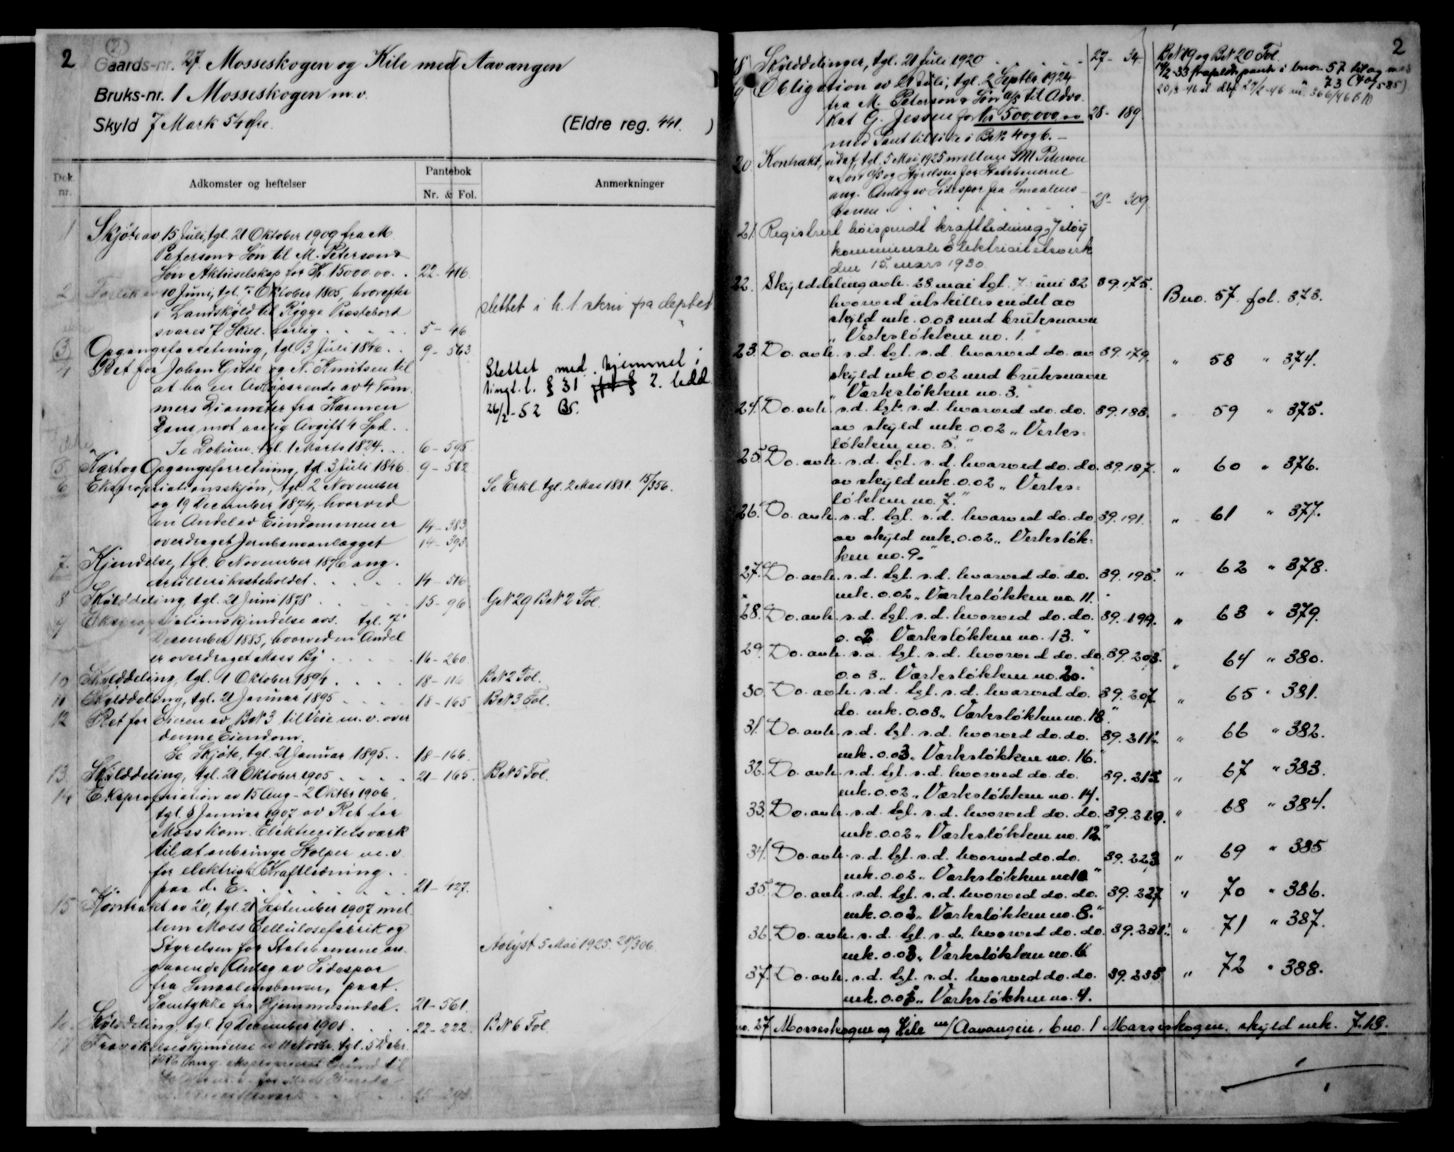 2
(2)
Gaards-nr. 27 Mosseskogen og Kile med Aavangen
Bruks-nr. 1 Mosseskogen m.v.
Skyld 7 Mark 54 Øre (Eldre reg. 441. )
Dok. nr.
Adkomster og heftelser
Pantebok
Nr. & Fol.
Anmerkninger
1 Skjøte av 15 Juli, tgl. 21 Oktober 1909 fra M.
Peterson & Søn til M. Peterson &
Søn Aktieselskap for Kr 15000.00. . 22 - 416
2 10 Juni, tgl. Oktober 1805, hvorefter
i Landskyld til Rygge Præstebord
svares aarlig . . . 5 - 46
slettet i h. t. skriv fra
3 Opgangsforretning, tgl. 3 Juli 1846 . . 9 - 563
4 Ret for Johan Gude og N. Knudsen til
at ha en av 4 Tom-
mers Diameter fra
mot aarlig Avgift 4 Spd. .
Se Dokum. tgl. 1 Marts 1824. . 6 - 595
Slettet med hjemmel i
tingl. l. § 31 2. ledd
26/2 - 52
5 Kart og Opgangsforretning, tgl. 3 Juli 1846 9 - 562
6 Ekspropriationsskjøn, tgl. 2 November
og 19 December 1874, hvorved
en Andel av Eiendommen er 14 - 383
overdraget Jernbaneanlægget 14 - 393
Se Erkl. tgl. 2 Mai 1881 15/356.
7 Kjendelse, tgl. 6 November 1876 ang.
. . . 14 - 516
8 Skylddeling, tgl. 21 Juni 1878 . . . 15 - 96 GN 29 BN 2 Fol.
9 tgl. 7
December 1885, hvorved en Andel
er overdraget Moss By . . . 16 - 260
10 Skylddeling, tgl. 1 Oktober 1894 . . . 18 - 116 BN 2 Fol.
11 Skylddeling, tgl. 21 Januar 1895 . . . 18 - 165 BN 3 Fol.
12 Ret for Eieren av BN 3 til Veie m.v. over
denne Eiendom.
Se Skjøte, tgl. 21 Januar 1895. . 18 - 166.
13. Skylddeling, tgl. 21 Oktober 1905 . . . 21 - 165. BN 5 Fol.
14 Ekspropriation av 15 Aug - 2 Oktbr 1906.
tgl. 8 Januar 1907 av Ret for
Moss kom. Elektricitetsværk
til at anbringe Stolper m.v.
for elektrisk Kraftledning . .
paa d. E. . . . 21 - 427.
15 Kontrakt av 20, tgl. 21 September 1907 mel
lem Moss Cellulosefabrik og
Styrelsen for Statsbanerne an
gaaende Anlæg av Sidespor
fra Smaalensbanen, paat.
Samtykke fra Hjemmelsindeh. 21 - 561.
Avlyst 5 Mai 1925. 28/306
16. Skylddeling, tgl. 19 December 1908 . . . 22 - 222. BN 6 Fol.
2
18 Skylddelinger, tgl. 21 Juli 1920 . . . 27 - 34 BN 19 og BN 20 Fol.
19 Obligation av Juli, tgl. 2 Septbr 1924
fra M. Peterson & Søn A/S til Advo
kat G. Jessen for kr 500,000.00 28 - 189
med Pant tillike i BN 4 og 6. -
20 Kontrakt, tgl. 5 Mai 1925 mellem M Peterson
& Søn A/S og Styrelsen for Statsbanerne
ang. Anlæg av Sidespor fra Smaalens-
banen . . . 28 - 309
21. Registrert høispendt kraftledning Jeløy
kommunale Elektricitetsverk
den 15 mars 1930.
22. Skylddeling avh. 28 mai tgl. 7 juni 32 39.175. Bno. 57 fol. 373.
hvorved utskilles en del av
skyld mk. 0.03 med bruksnavn
„Verksløkken no. 1.
23. Do. avh. s.d. tgl. s.d. hvorved do. av 39.179. „ 58 „ 374.
skyld mk. 0.02 med bruksnavn
„Værksløkken no. 3.
24. Do. avh. s.d. tgl. s.d. hvorved do. do. 39.183. „ 59 „ 375.
av skyld mk. 0.02 „Verks-
løkken no. 5.“
25. Do. avh. s.d. tgl. s.d. hvorved do. do. 39.187. „ 60 „ 376.
av skyld mk. 0.02 „Verks-
løkken no. 7.“
26. Do. avh. s.d. tgl. s.d. hvorved do. do. 39.191. „ 61 „ 377.
av skyld mk. 0.02 „Verksløk-
ken no. 9.“
27. Do. avh. s.d. tgl. s.d. hvorved do. do. 39.195. „ 62 „ 378.
mk. 0.02 „Værksløkken no. 11.
28. Do. avh. s.d. tgl. s.d. hvorved do. do. 39.199. „ 63 „ 379.
0.02 Værksløkken no. 13.“
29. Do. avh. s.d. tgl. s.d. hvorved do. do. 39.203. „ 64 „ 380.
0.03 „Værksløkken no. 20.
30. Do. avh. s.d. tgl. s.d. hvorved do. 39.207. „ 65 „ 381.
do. mk. 0.03 „Værksløkken no. 18.“
31. Do. avh. s.d. tgl. s.d. hvorved do. do. 39.211. „ 66 „ 382.
mk. 0.03 „Værksløkken no. 16.
32. Do. avh. s.d. tgl. s.d. hvorved do. do. 39.215. „ 67 „ 383.
mk. 0.02 „Værksløkken no. 14.
33. Do. avh. s.d. tgl. s.d. hvorved do. do. 39.219. „ 68 „ 384.
mk. 0.02 „Værksløkken no. 12.“
34. Do. avh. s.d. tgl. s.d. hvorved do. do. 39.223. „ 69 „ 385
mk. 0.02 „Værksløkken no 10.“
35. Do. avh. s.d. tgl. s.d. hvorved do. do. 39.227 „ 70 „ 386.
mk. 0.02 „Værksløkken no. 8.“
36. Do. avh. s.d. tgl. s.d. hvorved do. do. 39.231. „ 71 „ 387.
mk. 0.03 „Værksløkken no. 6
37. Do. avh. s.d. tgl. s.d. hvorved do. do. 39.235 „ 72 „ 388.
mk. 0.03 „Værksløkken no. 4.
no. 27 Mosseskogen og Kile m/ Aavangen, bno. 1 Mosseskogen. skyld mk. 7.13.